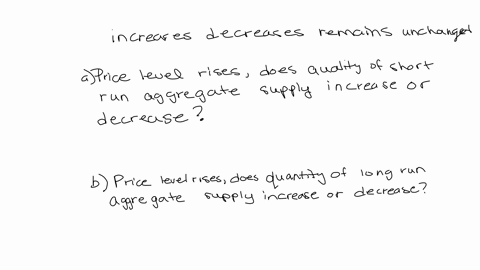 increases decreases remains unchanged
a) Price level rises, does quality of short
run aggregate supply increase or
decrease?
b) Price level rises, does quantity of long run
aggregate supply increase or decrease?